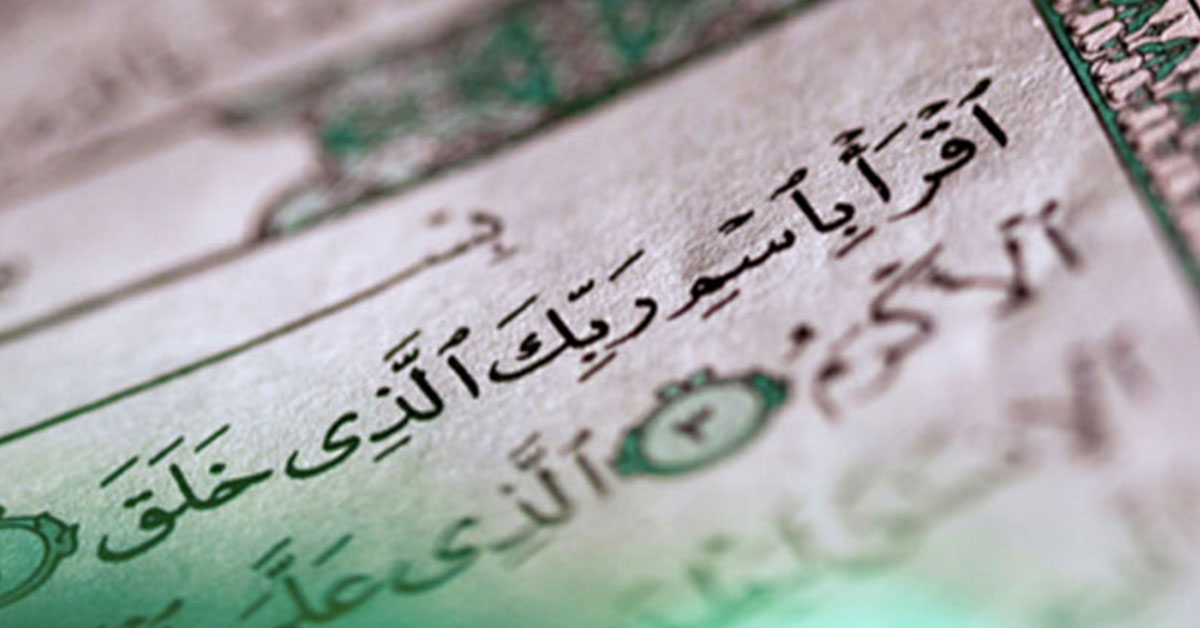 بِسۡ
ٱقۡرَأۡ بِٱسۡمِ رَبِّكَ ٱلَّذِى خَلَقَ
ٱلۡأَكۡرَمُ ٣ ٱلَّذِى عَلَّمَ